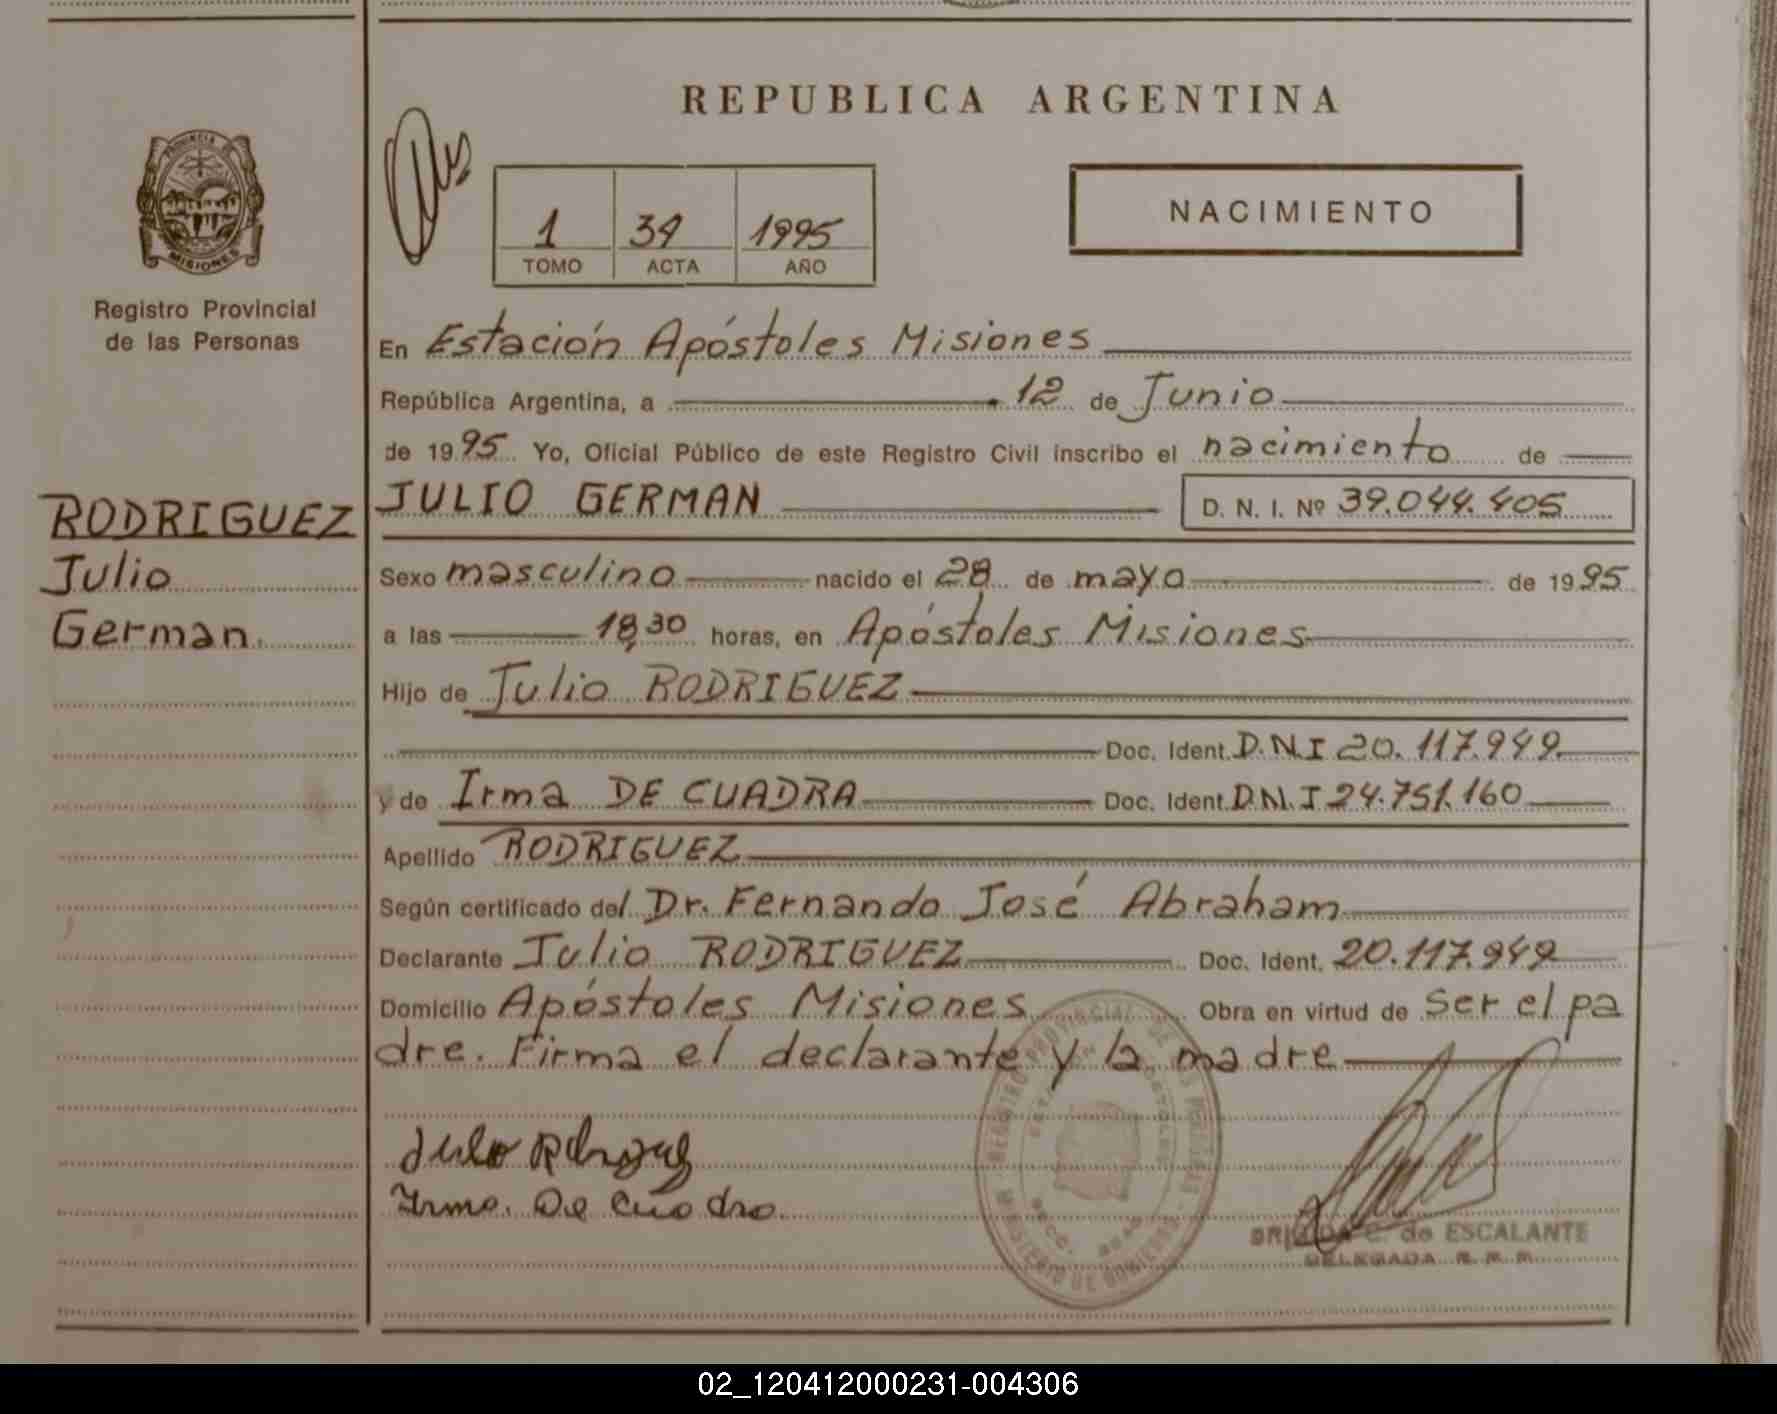 REPUBLICA ARGENTINA
PROVINCIA DE
MISIONES
Registro Provincial
de las Personas
1 39 1995
TOMO ACTA AÑO
NACIMIENTO
En Estación Apóstoles Misiones
República Argentina, a 12 de Junio
de 1995 Yo, Oficial Público de este Registro Civil inscribo el nacimiento de
JULIO GERMAN D. N. I. Nº 39.044.405
RODRIGUEZ
Julio
German.
Sexo masculino nacido el 28 de mayo de 1995
a las 18,30 horas, en Apóstoles Misiones
Hijo de Julio RODRIGUEZ
Doc. Ident. D.N.I 20.117.949
y de Irma DE CUADRA Doc. Ident. D.N.I 24.751.160
Apellido RODRIGUEZ
Según certificado del Dr. Fernando José Abraham
Declarante Julio RODRIGUEZ Doc. Ident. 20.117.949
Domicilio Apóstoles Misiones Obra en virtud de Ser el pa
dre. Firma el declarante y la madre
REGISTRO PROVINCIAL DE LAS PERSONAS
MINISTERIO DE GOBIERNO
Julio
Irma. De Cuadra.
C. de ESCALANTE
DELEGADA
02_120412000231-004306